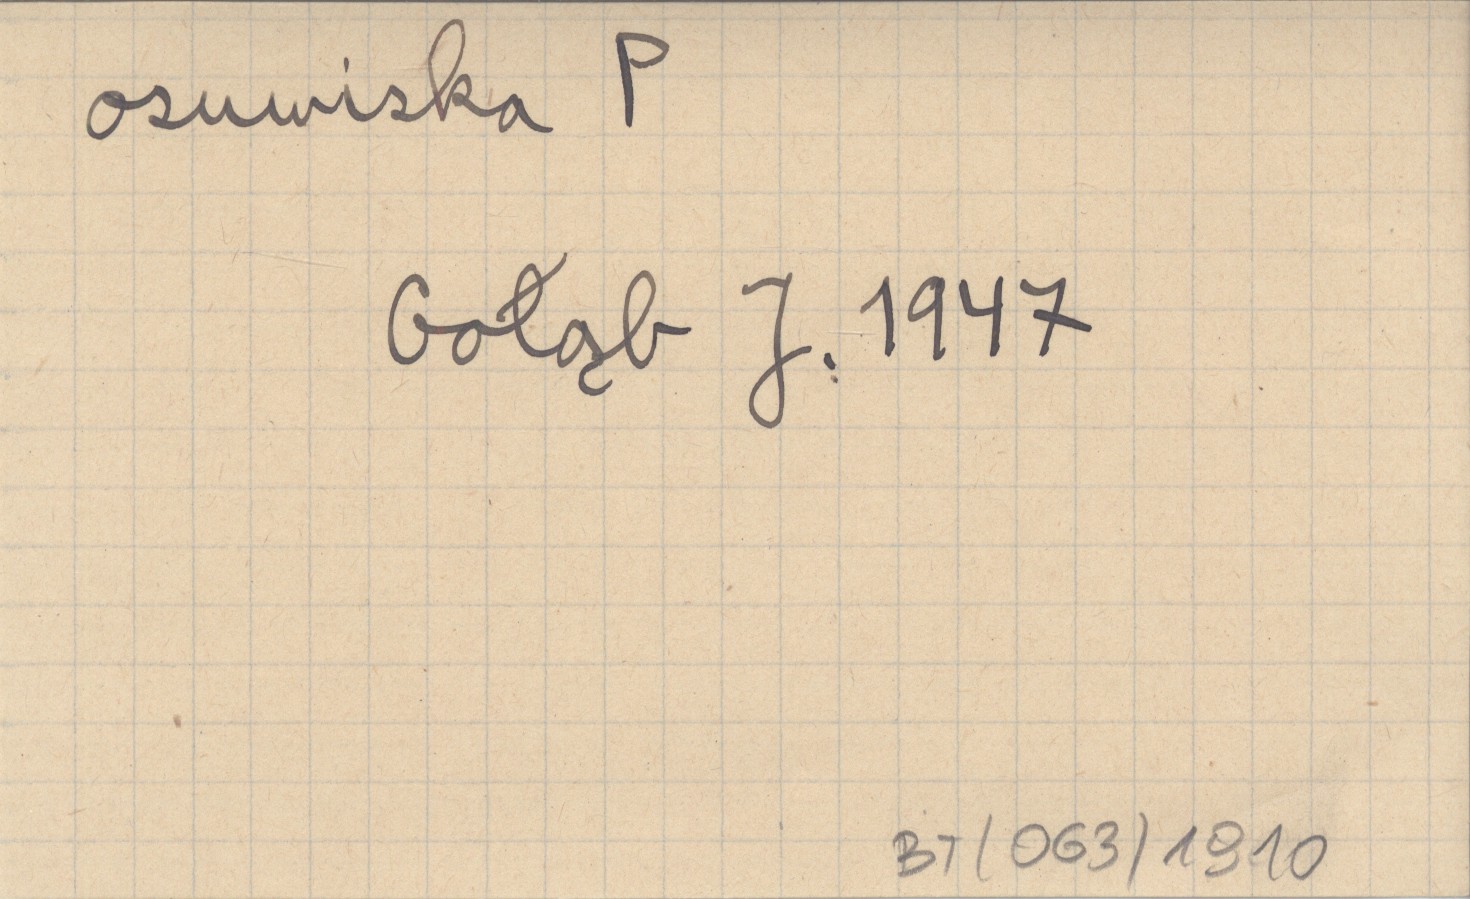 osuwiska P
Gołąb J. 1947
BT (063) 1910